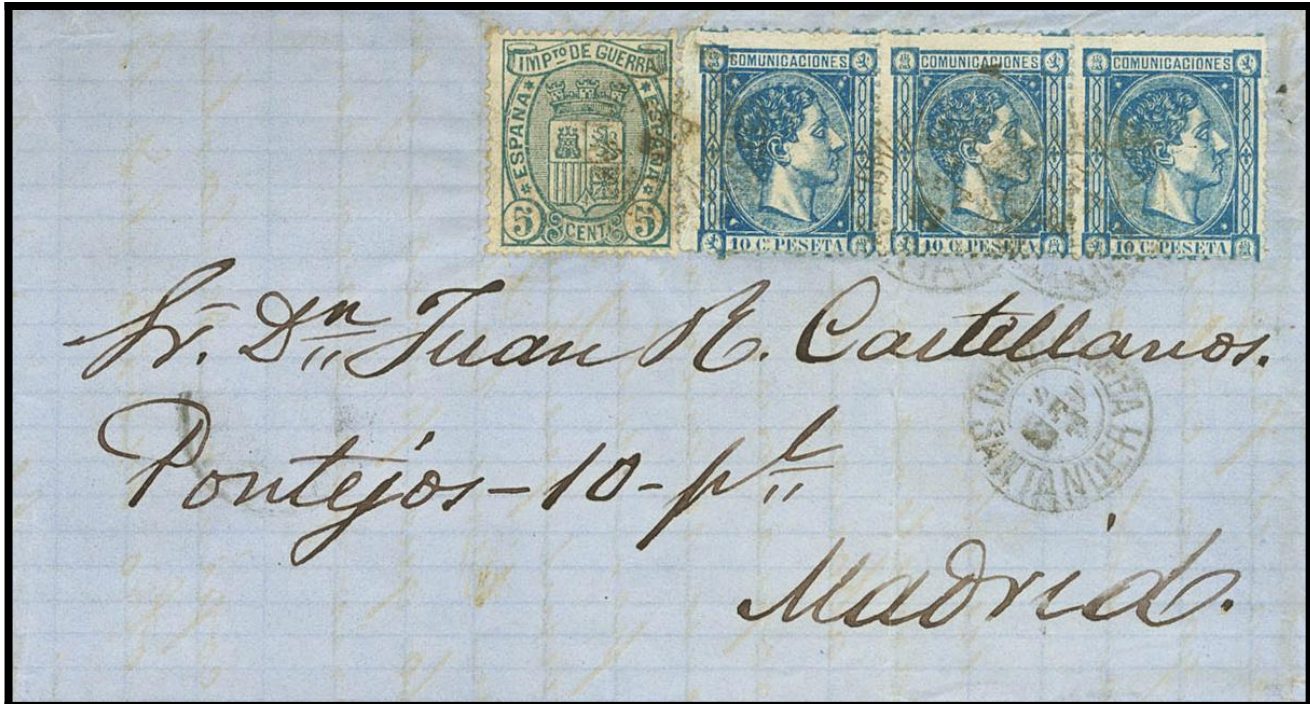 IMPTO DE GUERRA
ESPAÑA ESPAÑA
5 CENT. 5
COMUNICACIONES
10 C. PESETA
COMUNICACIONES
10 C. PESETA
COMUNICACIONES
10 C. PESETA
Sr. Dn Juan R. Castellanos.
SET
SANTANDER
Pontejos - 10 - pl
Madrid.